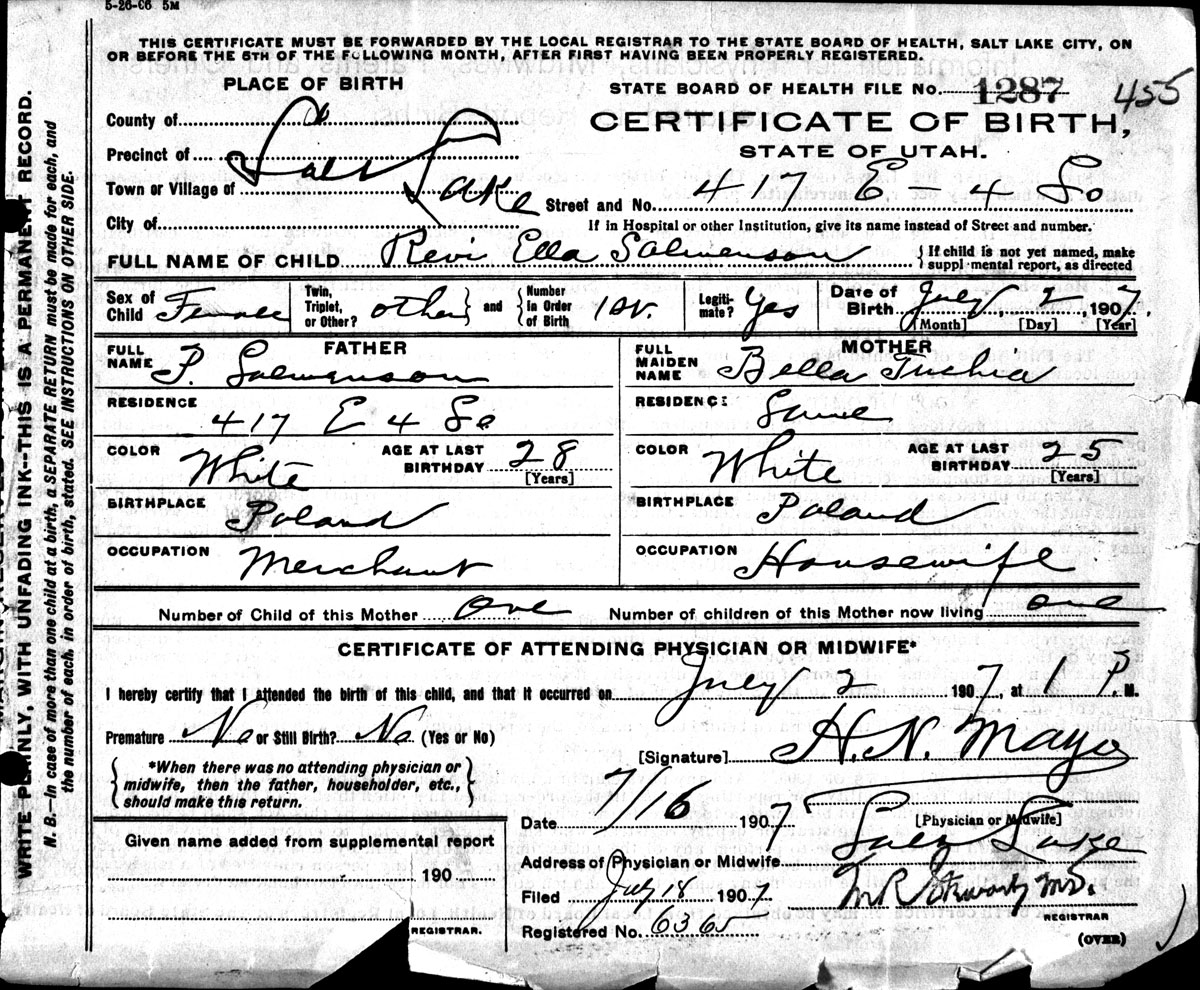 5-26-06 5M
THIS CERTIFICATE MUST BE FORWARDED BY THE LOCAL REGISTRAR TO THE STATE BOARD OF HEALTH, SALT LAKE CITY, ON
OR BEFORE THE 5TH OF THE FOLLOWING MONTH, AFTER FIRST HAVING BEEN PROPERLY REGISTERED.
PLACE OF BIRTH
STATE BOARD OF HEALTH FILE No. 1287 455
CERTIFICATE OF BIRTH,
STATE OF UTAH.
County of
Precinct of
Town or Village of
City of
Salt Lake
Street and No. 417 E - 4 So
If in Hospital or other Institution, give its name instead of Street and number.
FULL NAME OF CHILD Revi Ella Salmenson
{If child is not yet named, make
suppl mental report, as directed
Sex of Child Female
Twin, Triplet, or Other? other } and { Number in Order of Birth 1st.
Legiti-mate? Yes
Date of Birth July 2, 1907.
[Month] [Day] [Year]
FATHER
FULL NAME P. Salmenson
RESIDENCE 417 E 4 So
COLOR White AGE AT LAST BIRTHDAY 28 [Years]
BIRTHPLACE Poland
OCCUPATION Merchant
MOTHER
FULL MAIDEN NAME Bella
RESIDENCE Same
COLOR White AGE AT LAST BIRTHDAY 25 [Years]
BIRTHPLACE Poland
OCCUPATION Housewife
Number of Child of this Mother One Number of children of this Mother now living one
CERTIFICATE OF ATTENDING PHYSICIAN OR MIDWIFE*
I hereby certify that I attended the birth of this child, and that it occurred on July 2 1907, at 1 P. M.
Premature No or Still Birth? No (Yes or No)
[Signature] H. N. Mayo
{ *When there was no attending physician or
midwife, then the father, householder, etc.,
should make this return. }
Date 7/16 1907
[Physician or Midwife]
Address of Physician or Midwife Salt Lake
Filed July 18 1907 M R Stewart MD.
REGISTRAR
Registered No. 636
(OVER)
Given name added from supplemental report
190
REGISTRAR.
WRITE PLAINLY, WITH UNFADING INK--THIS IS A PERMANENT RECORD.
N. B.--In case of more than one child at a birth, a SEPARATE RETURN must be made for each, and
the number of each, in order of birth, stated. SEE INSTRUCTIONS ON OTHER SIDE.